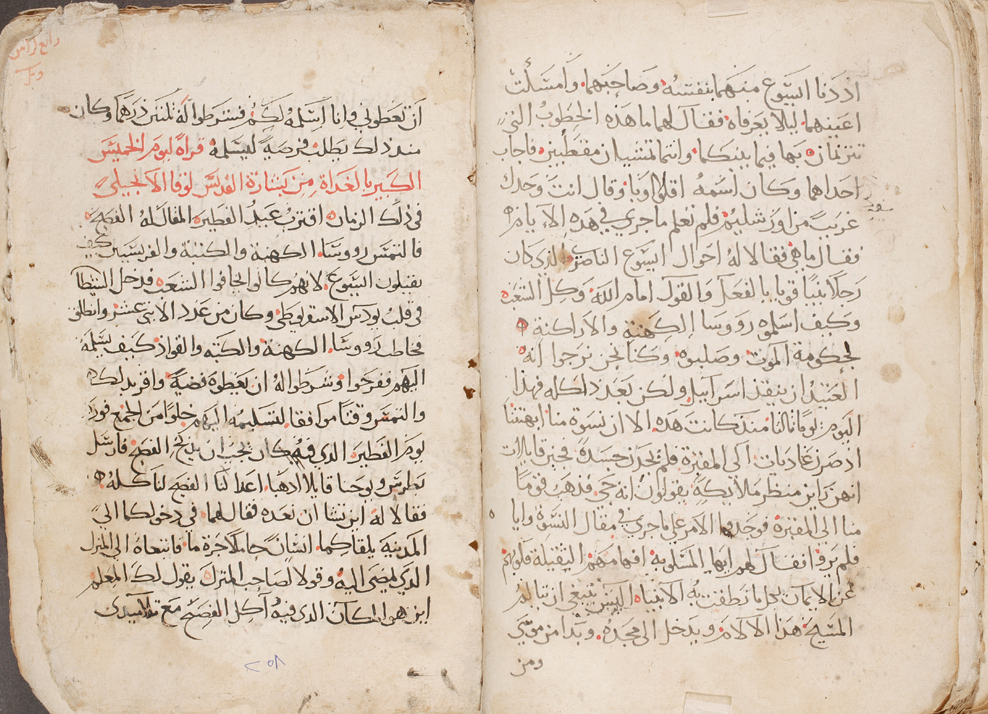 اذ دنا ايسوع منهما بنفسه وصاحبهما وامسكت
اعينهما ليلا يعرفاه فقال لهما ما هذه الخطوب التي
تتزنمان بها فيما بينكما وانتما تمشيان مقطبين فاجاب
احداهما وكان اسمه اقلاوبا وقال انت وحدك
غريب من اورشليم فلم تعلم ما جري في هذه الايام
فقال ما هي فقالا له احوال ايسوع الناصري الذي كان
رجلا نبيا قويا بالفعل والقول امام الله وكل الشعب
وكيف اسلموه رووسا الكهنة والاراكنة
لحكومة الموت وصلبوه وكنا نحن نرجوا انه
العتيد ان ينقذ اسراييل ولكن بعد ذلك كله فهذا
اليوم يومًا ثالثا منذ كانت هذه الا ان نسوة منا ابهتننا
اذ صرن غاديات الى المقبرة فلم يجدن جسده فجين قايلات
انهن راين منظر ملائكة يقولون انه حي فذهب قومًا
منا الى المقبرة فوجدوا الامر على ما جري في مقال النسوة واياه
فلم يروا فقال لهم ايها المسلوبة افهامهم الثقيلة قلوبهم
عن الايمان بكل ما نطقت به الانبياء اليس ينبغي ان تنالم
المسيح هذا الالام ويدخل الى مجده وبدا من موسى
ومن
رابع
ان تعطوني فانا اسلمه لكم فشرطوا له ثلثين درهما وكان
منذ ذلك يطلب فرصة ليسلمه قراة ليوم الخميس
الكبير بالغداة من بشارة القديس لوقا الانجيلي
في ذلك الزمان اقترب عيد الفطير المقال له الفصح
فالتمس رووسا الكهنة والكتبة والفريسيين كيف
يقتلون ايسوع لانهم كانوا يخافوا الشعب فدخل الشيطا
في قلب يودس الاسخريوطي وكان من عدد الاثني عشر وانطلق
فخاطب رووسا الكهنة والكتبه والقواد كيف يسلمه
اليهم ففرحوا وشرطوا له ان يعطوه فضة واقر بذلك
والتمس وقتا موافقا لتسليمه اليهم خلوا من الجمع فورد
يوم الفطير الذي فيه كان يجب ان يذبح الفصح فارسل
بطرس ويوحنا قايلا اذهبا اعدا لنا الفصح لناكله
فقالا له اين تشا ان نعده فقال لهما في دخولكما الى
المدينة يلقاكما انسان حاملا جرة ما فاتبعاه الى المنزل
الذي يمضي اليه وقولا لصاحب المنزل يقول لك المعلم
اين هو المكان الذي فيه اكل الفصح مع تلاميذي
٢٥٨